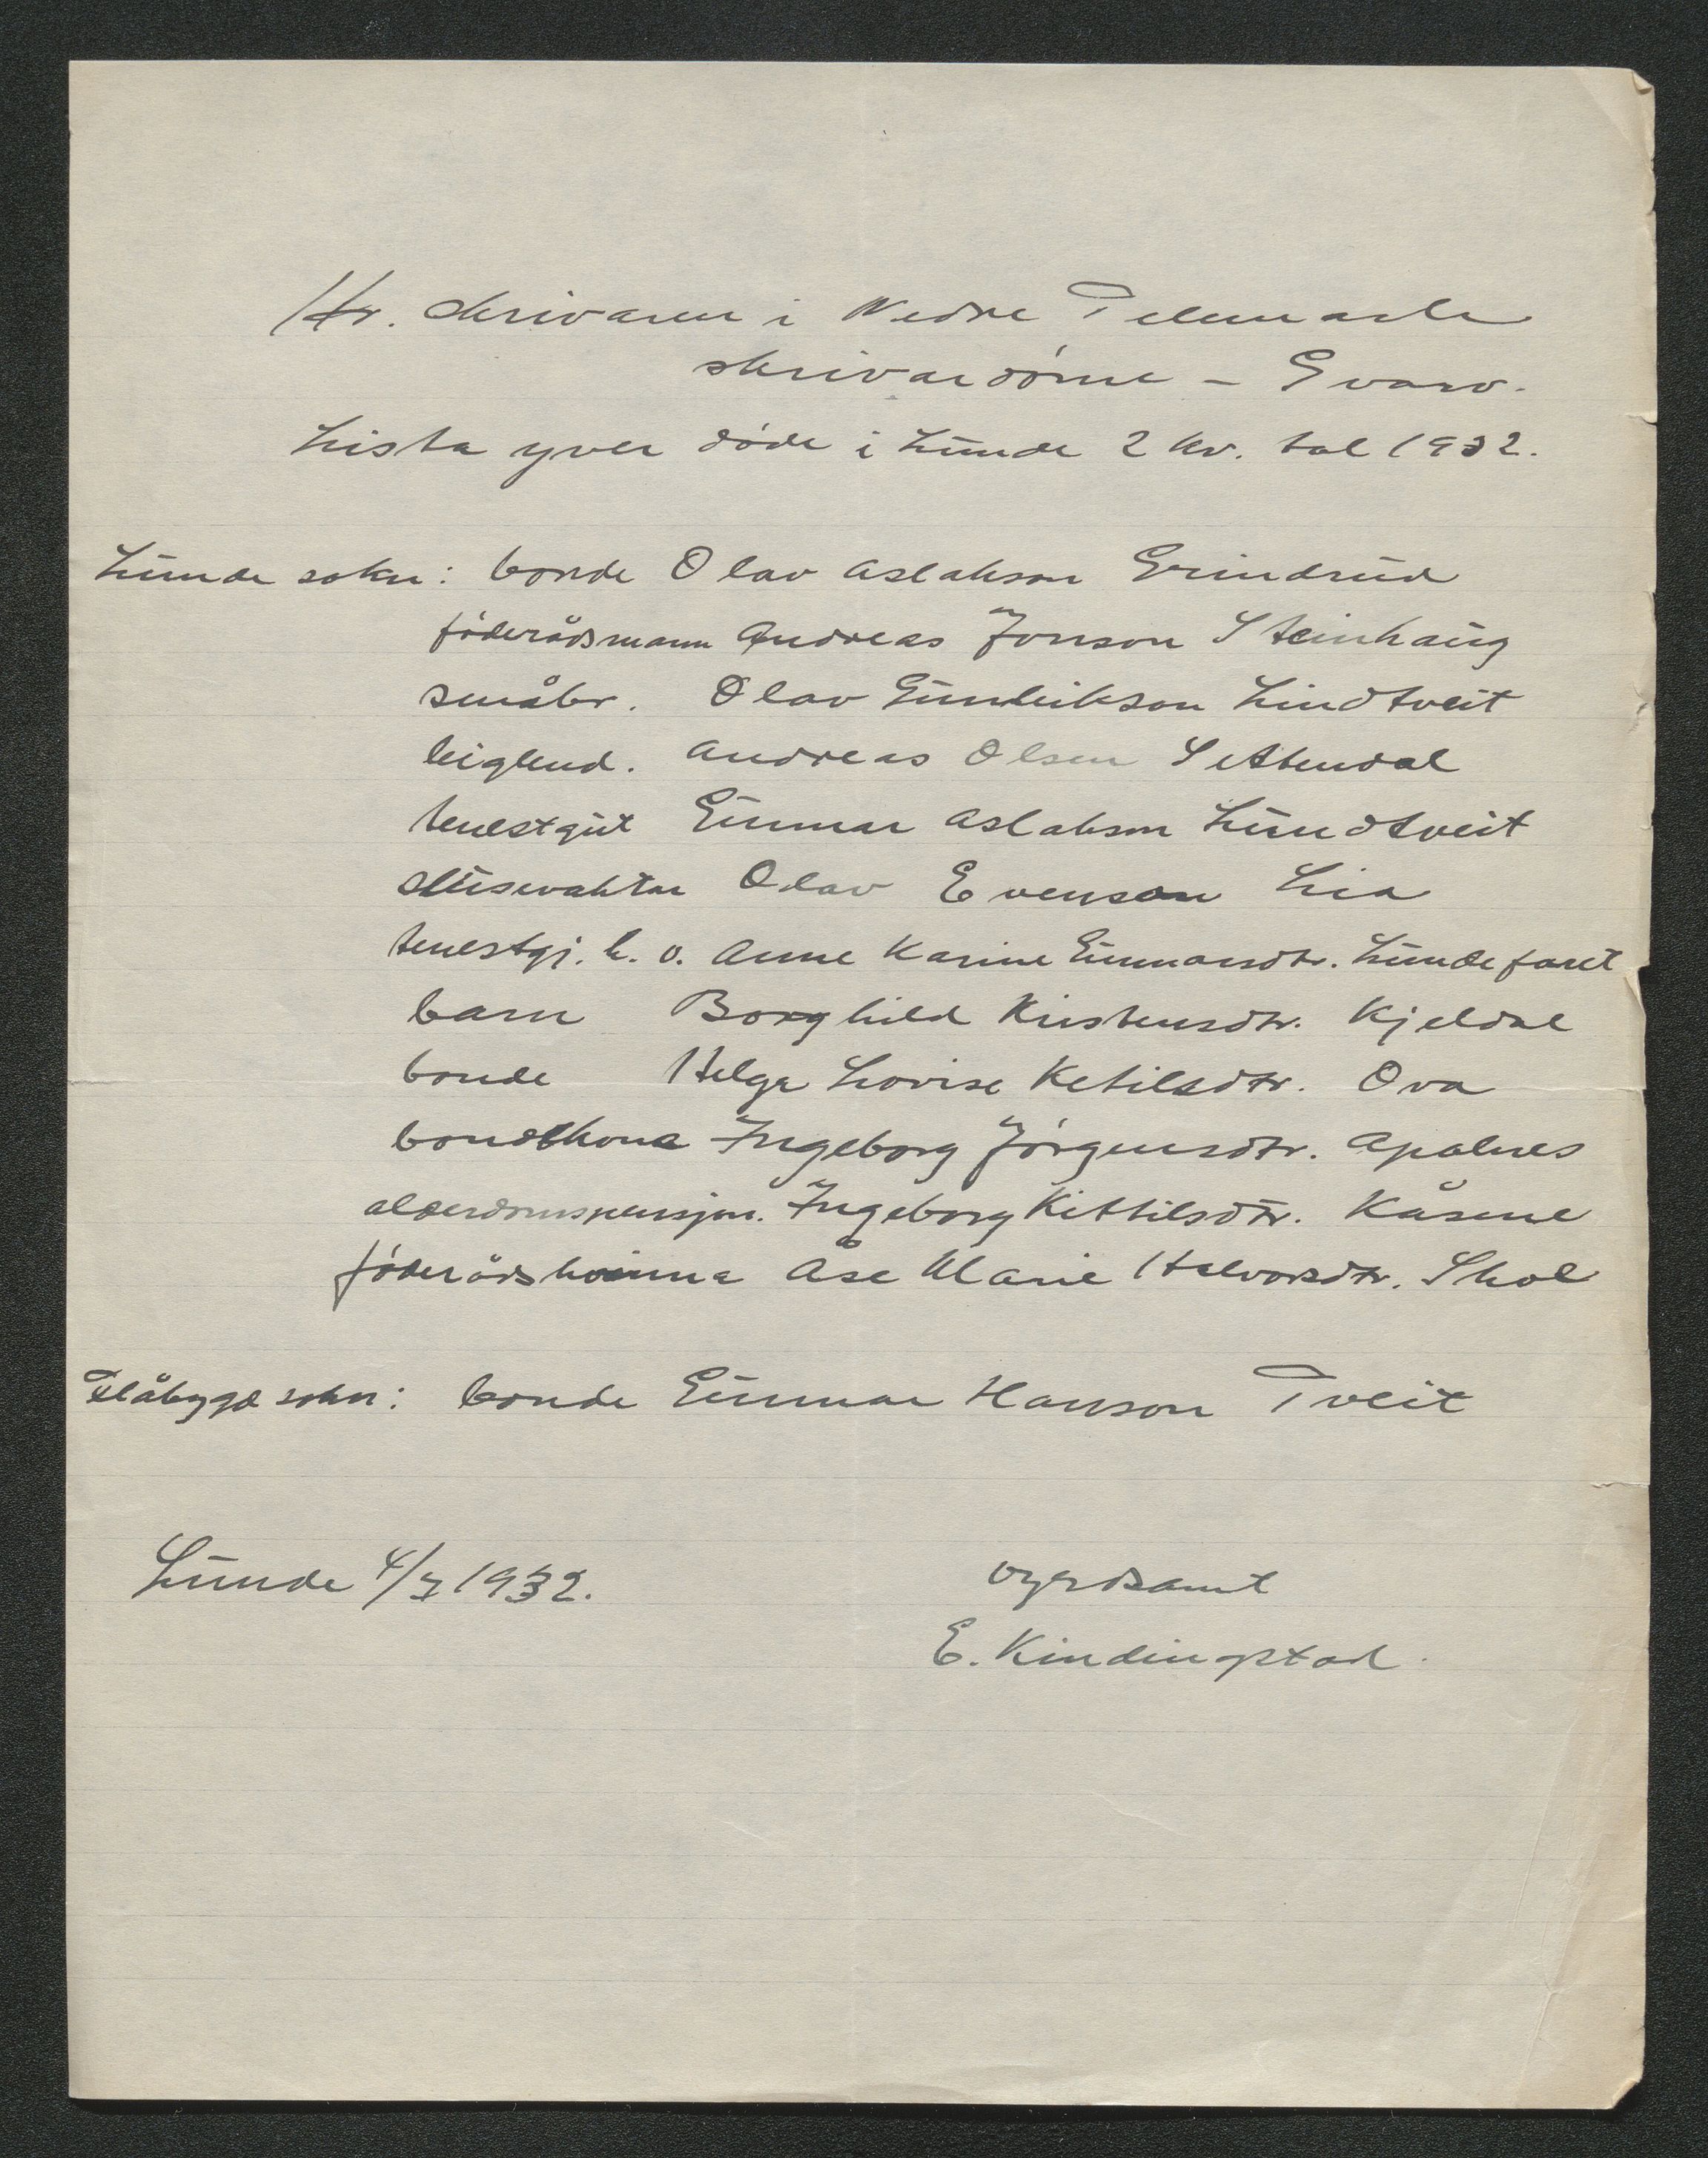 Hr. Skrivaren i Nedre Telemark
skrivardöme – Gvarv.
Lista yver döde i Lunde 2 kv. tal 1932.
Lunde sokn: bonde Olav Aslakson Grindrud
föderådsmann Andreas Jonson Steinhaug
småbr. Olav Gunleikson Lindtveit
leiglend. Andreas Olsen Settendal
tenestgut Gunnar Aslakson Lundtveit
slusevaktar Olav Evenson Lia
tenestgj. h. o. Anne Karine Gunnarsdtr. Lundefaret
barn Borghild Kristensdtr. Kjeldal
bonde Helga Lovise Ketilsdtr. Ova
bondekona Ingeborg Jörgensdtr. Apalnes
alderdomspensjon. Ingeborg Kittilsdtr. Kåsene
föderådskvinna Åse Marie Halvorsdtr. Skol
Flåbygd sokn: bonde Gunnar Hanson Tveit
Lunde 4/7 1932. vyrdsamt
E. Kindingstad.